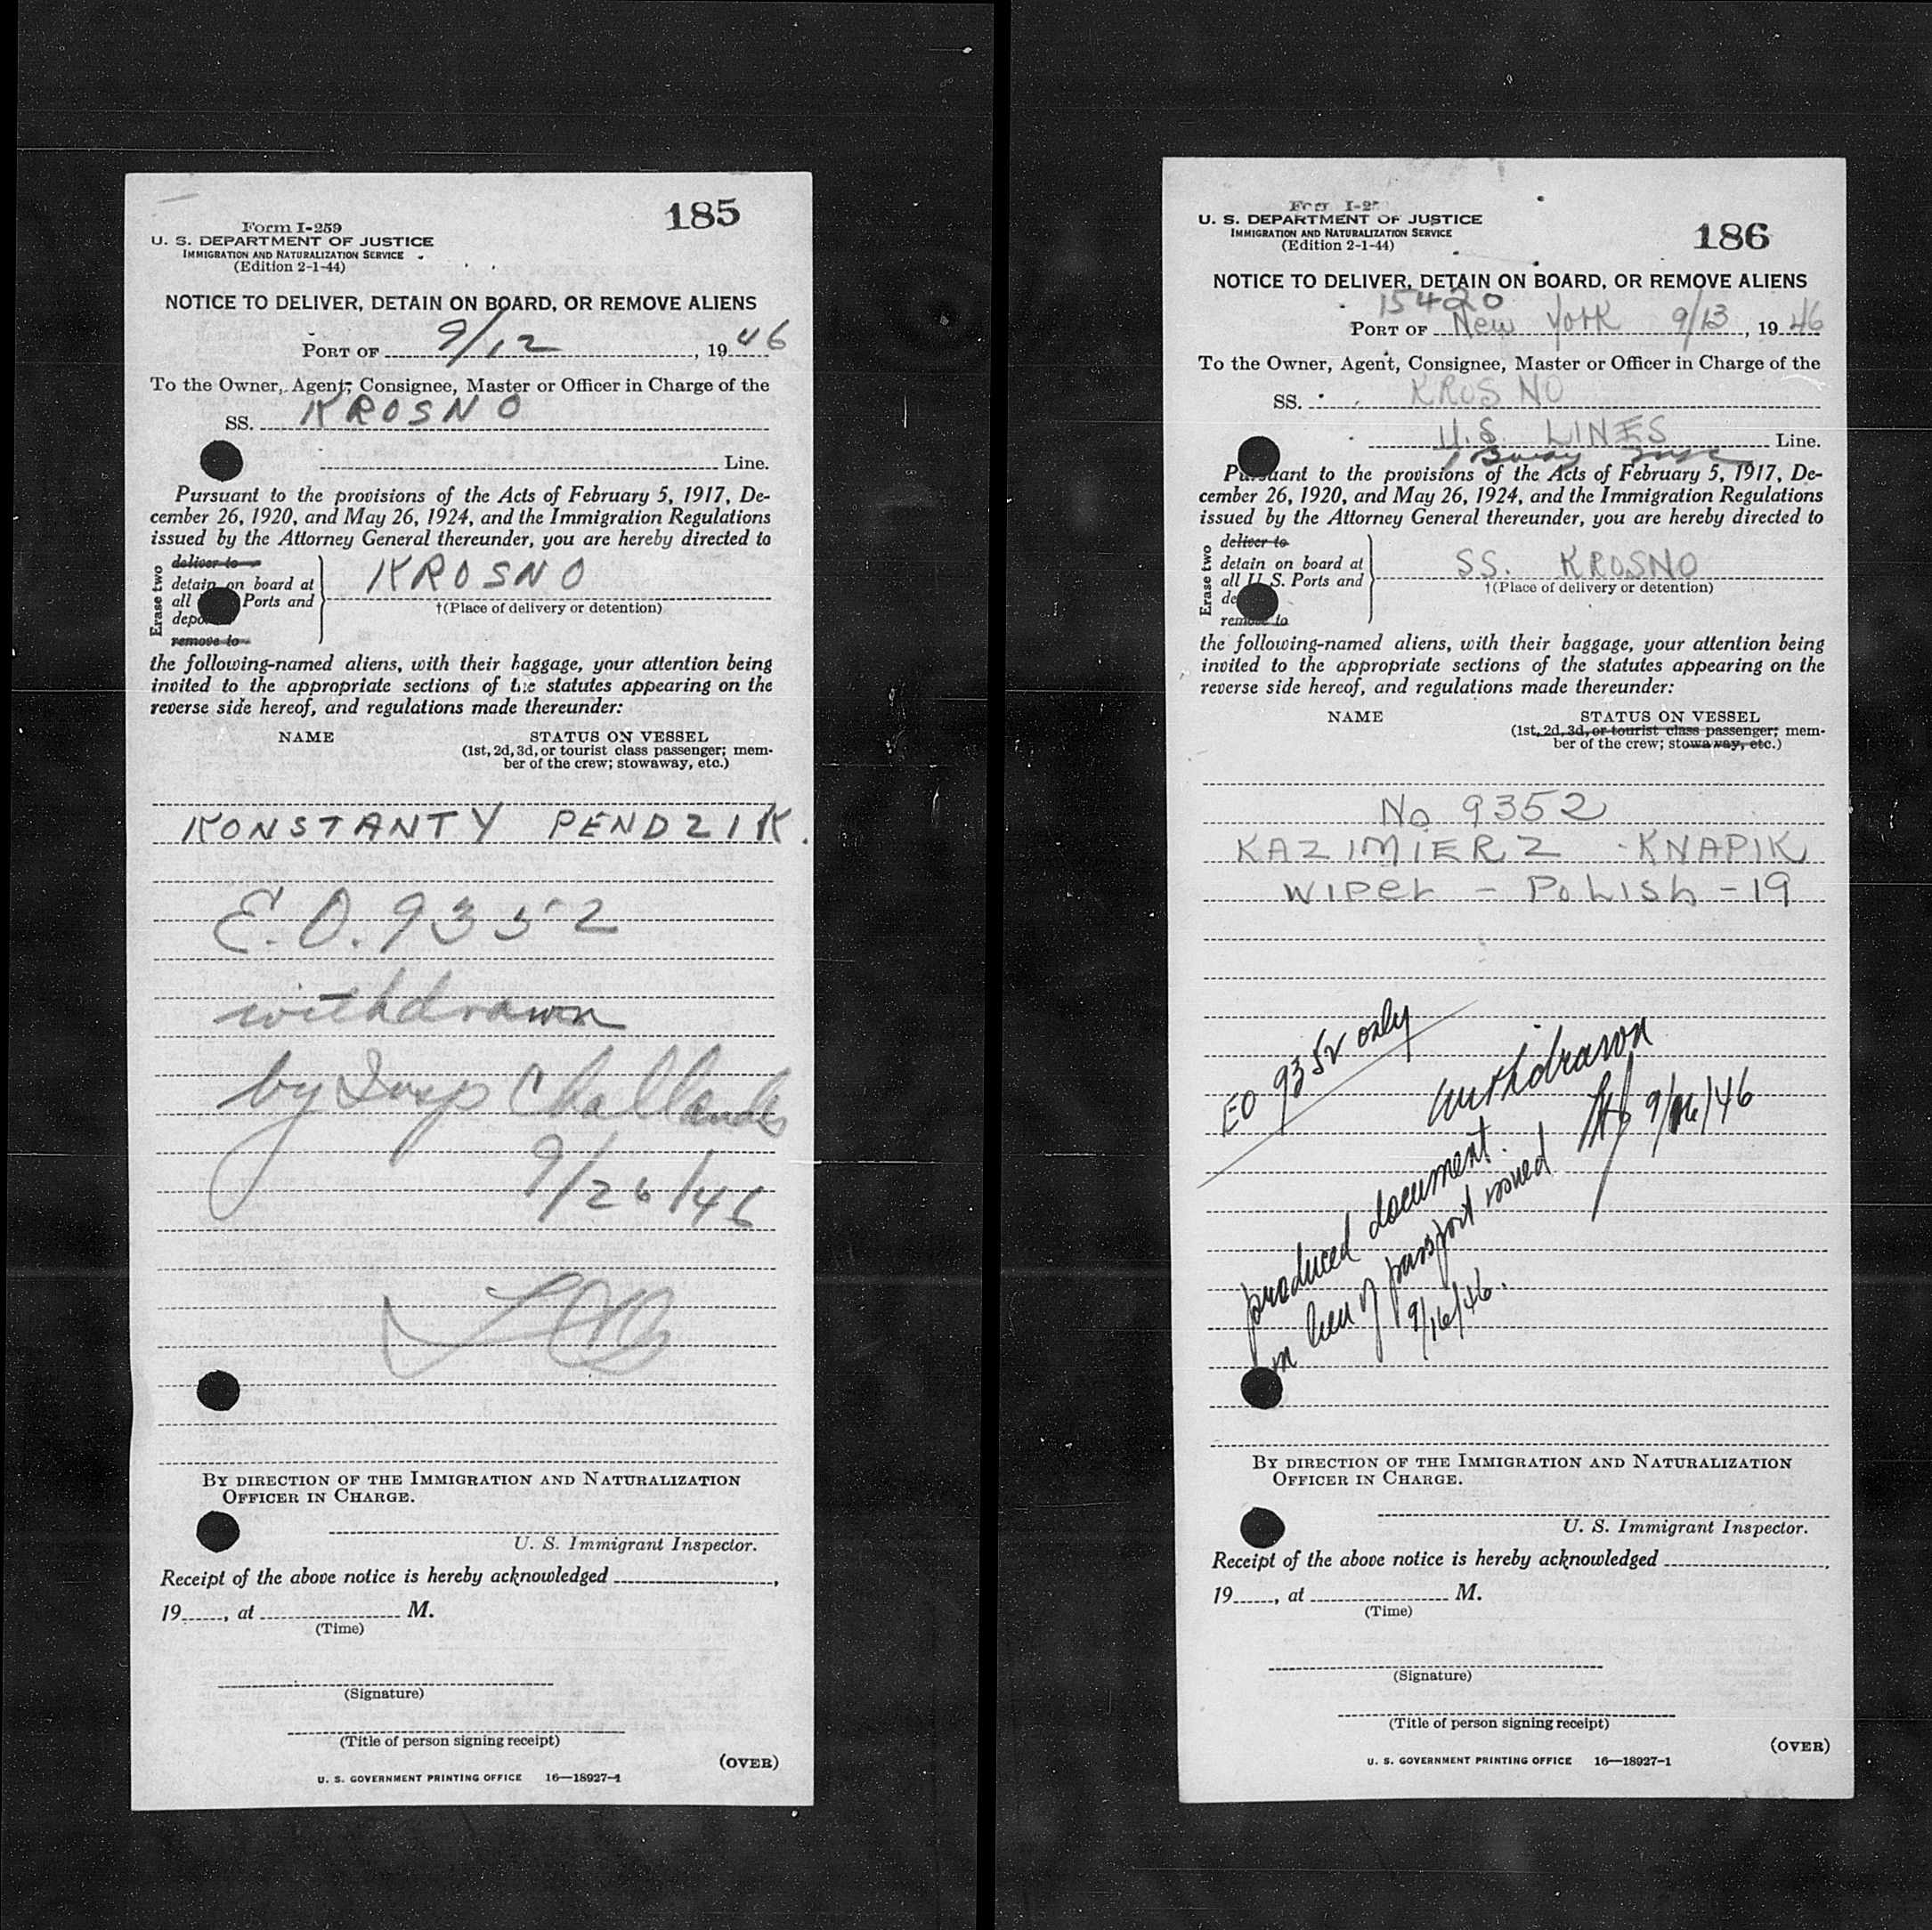 185
Form I-259
U. S. DEPARTMENT OF JUSTICE
IMMIGRATION AND NATURALIZATION SERVICE
(Edition 2-1-44)
NOTICE TO DELIVER, DETAIN ON BOARD, OR REMOVE ALIENS
PORT OF 9/12, 1946
To the Owner, Agent, Consignee, Master or Officer in Charge of the
SS. KROSNO
Line.
Pursuant to the provisions of the Acts of February 5, 1917, De-
cember 26, 1920, and May 26, 1924, and the Immigration Regulations
issued by the Attorney General thereunder, you are hereby directed to
Erase two
deliver to
detain on board at
all Ports and
remove to
KROSNO
†(Place of delivery or detention)
the following-named aliens, with their baggage, your attention being
invited to the appropriate sections of the statutes appearing on the
reverse side hereof, and regulations made thereunder:
NAME STATUS ON VESSEL
(1st, 2d, 3d, or tourist class passenger; mem-
ber of the crew; stowaway, etc.)
KONSTANTY PENDZIK.
E.O. 9352
withdrawn
by Insp Challands
9/26/46
BY DIRECTION OF THE IMMIGRATION AND NATURALIZATION
OFFICER IN CHARGE.
U. S. Immigrant Inspector.
Receipt of the above notice is hereby acknowledged
19, at M.
(Time)
(Signature)
(Title of person signing receipt)
(OVER)
U. S. GOVERNMENT PRINTING OFFICE 16—18927-1
186
U. S. DEPARTMENT OF JUSTICE
IMMIGRATION AND NATURALIZATION SERVICE
(Edition 2-1-44)
NOTICE TO DELIVER, DETAIN ON BOARD, OR REMOVE ALIENS
15420
PORT OF New York 9/13, 1946
To the Owner, Agent, Consignee, Master or Officer in Charge of the
SS. KROSNO
U.S. LINES Line.
1 Bway
Pursuant to the provisions of the Acts of February 5, 1917, De-
cember 26, 1920, and May 26, 1924, and the Immigration Regulations
issued by the Attorney General thereunder, you are hereby directed to
Erase two
deliver to
detain on board at
all U. S. Ports and
remove to
SS. KROSNO
†(Place of delivery or detention)
the following-named aliens, with their baggage, your attention being
invited to the appropriate sections of the statutes appearing on the
reverse side hereof, and regulations made thereunder:
NAME STATUS ON VESSEL
(1st, 2d, 3d, or tourist class passenger; mem-
ber of the crew; stowaway, etc.)
No 9352
KAZIMIERZ KNAPIK
WIPER - POLISH - 19
EO 9352 only
withdrawn
9/16/46
produced document
in lieu of passport issued
9/16/46.
BY DIRECTION OF THE IMMIGRATION AND NATURALIZATION
OFFICER IN CHARGE.
U. S. Immigrant Inspector.
Receipt of the above notice is hereby acknowledged
19, at M.
(Time)
(Signature)
(Title of person signing receipt)
(OVER)
U. S. GOVERNMENT PRINTING OFFICE 16—18927-1